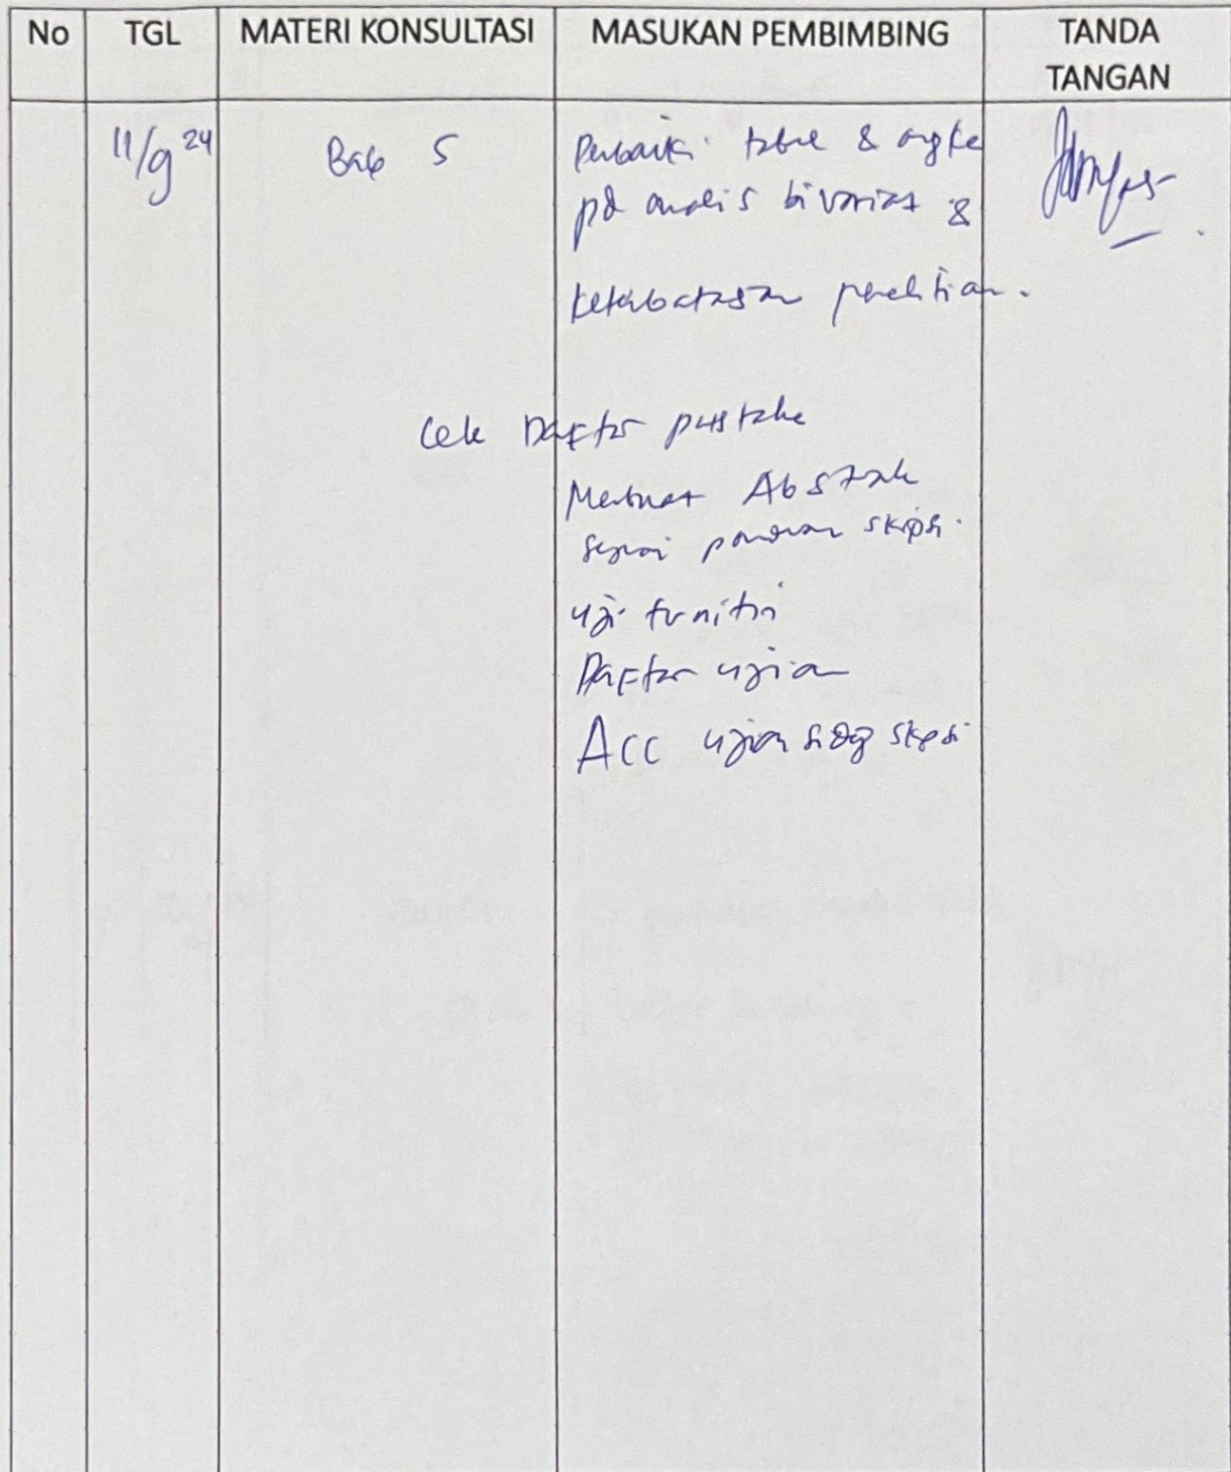 No TGL MATERI KONSULTASI MASUKAN PEMBIMBING TANDA
TANGAN
11/9 24 Bab 5 Perbaiki tabel & angka
pd analisis bivariat &
keterbatasan penelitian.
Cek Daftar pustaka
Membuat Abstrak
sesuai panduan skripsi.
uji turnitin
Daftar ujian
Acc ujian sidg skripsi